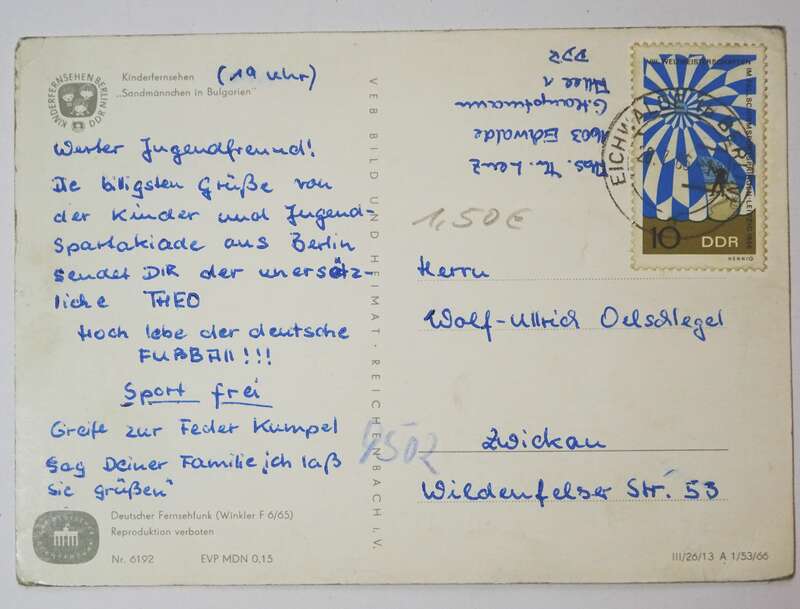 KINDERFERNSEHEN BERLIN
DDR
Kinderfernsehen
„Sandmännchen in Bulgarien"
(19 Uhr)
Werter Jugendfreund!
Die biligsten Grüße von
der Kinder und Jugend
Spartakiade aus Berlin
sendet DIR der unersätz-
liche THEO
Hoch lebe der deutsche
FUßBAll!!!
Sport frei
Greife zur Feder Kumpel
sag Deiner Familie, ich laß
sie grüßen"
Deutscher Fernsehfunk (Winkler F 6/65)
Reproduktion verboten
Nr. 6192 EVP MDN 0,15
VEB BILD UND HEIMAT · REICHENBACH I. V.
Lenz
1603 Eichwalde
G. Hauptmann
Allee 1
DDR
1,50€
EICHWALDE
10 DDR
HENNIG
Herrn
Wolf-Ullrich Oelschlegel
9502
Zwickau
Wildenfelser Str. 53
III/26/13 A 1/53/66